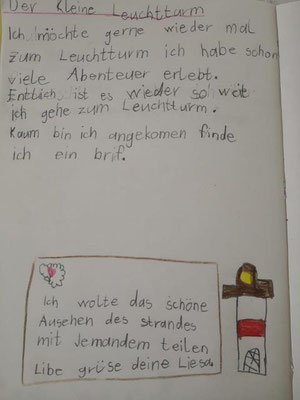 Der Kleine Leuchtturm
Ich möchte gerne wieder mal
zum Leuchtturm ich habe schon
viele Abenteuer erlebt.
Entlich ist es wieder so weit
ich gehe zum Leuchtturm.
Kaum bin ich angekomen finde
ich ein brif.
Ich wolte das schöne
Aussehen des strandes
mit Jemandem teilen
Libe grüse deine Liesa.